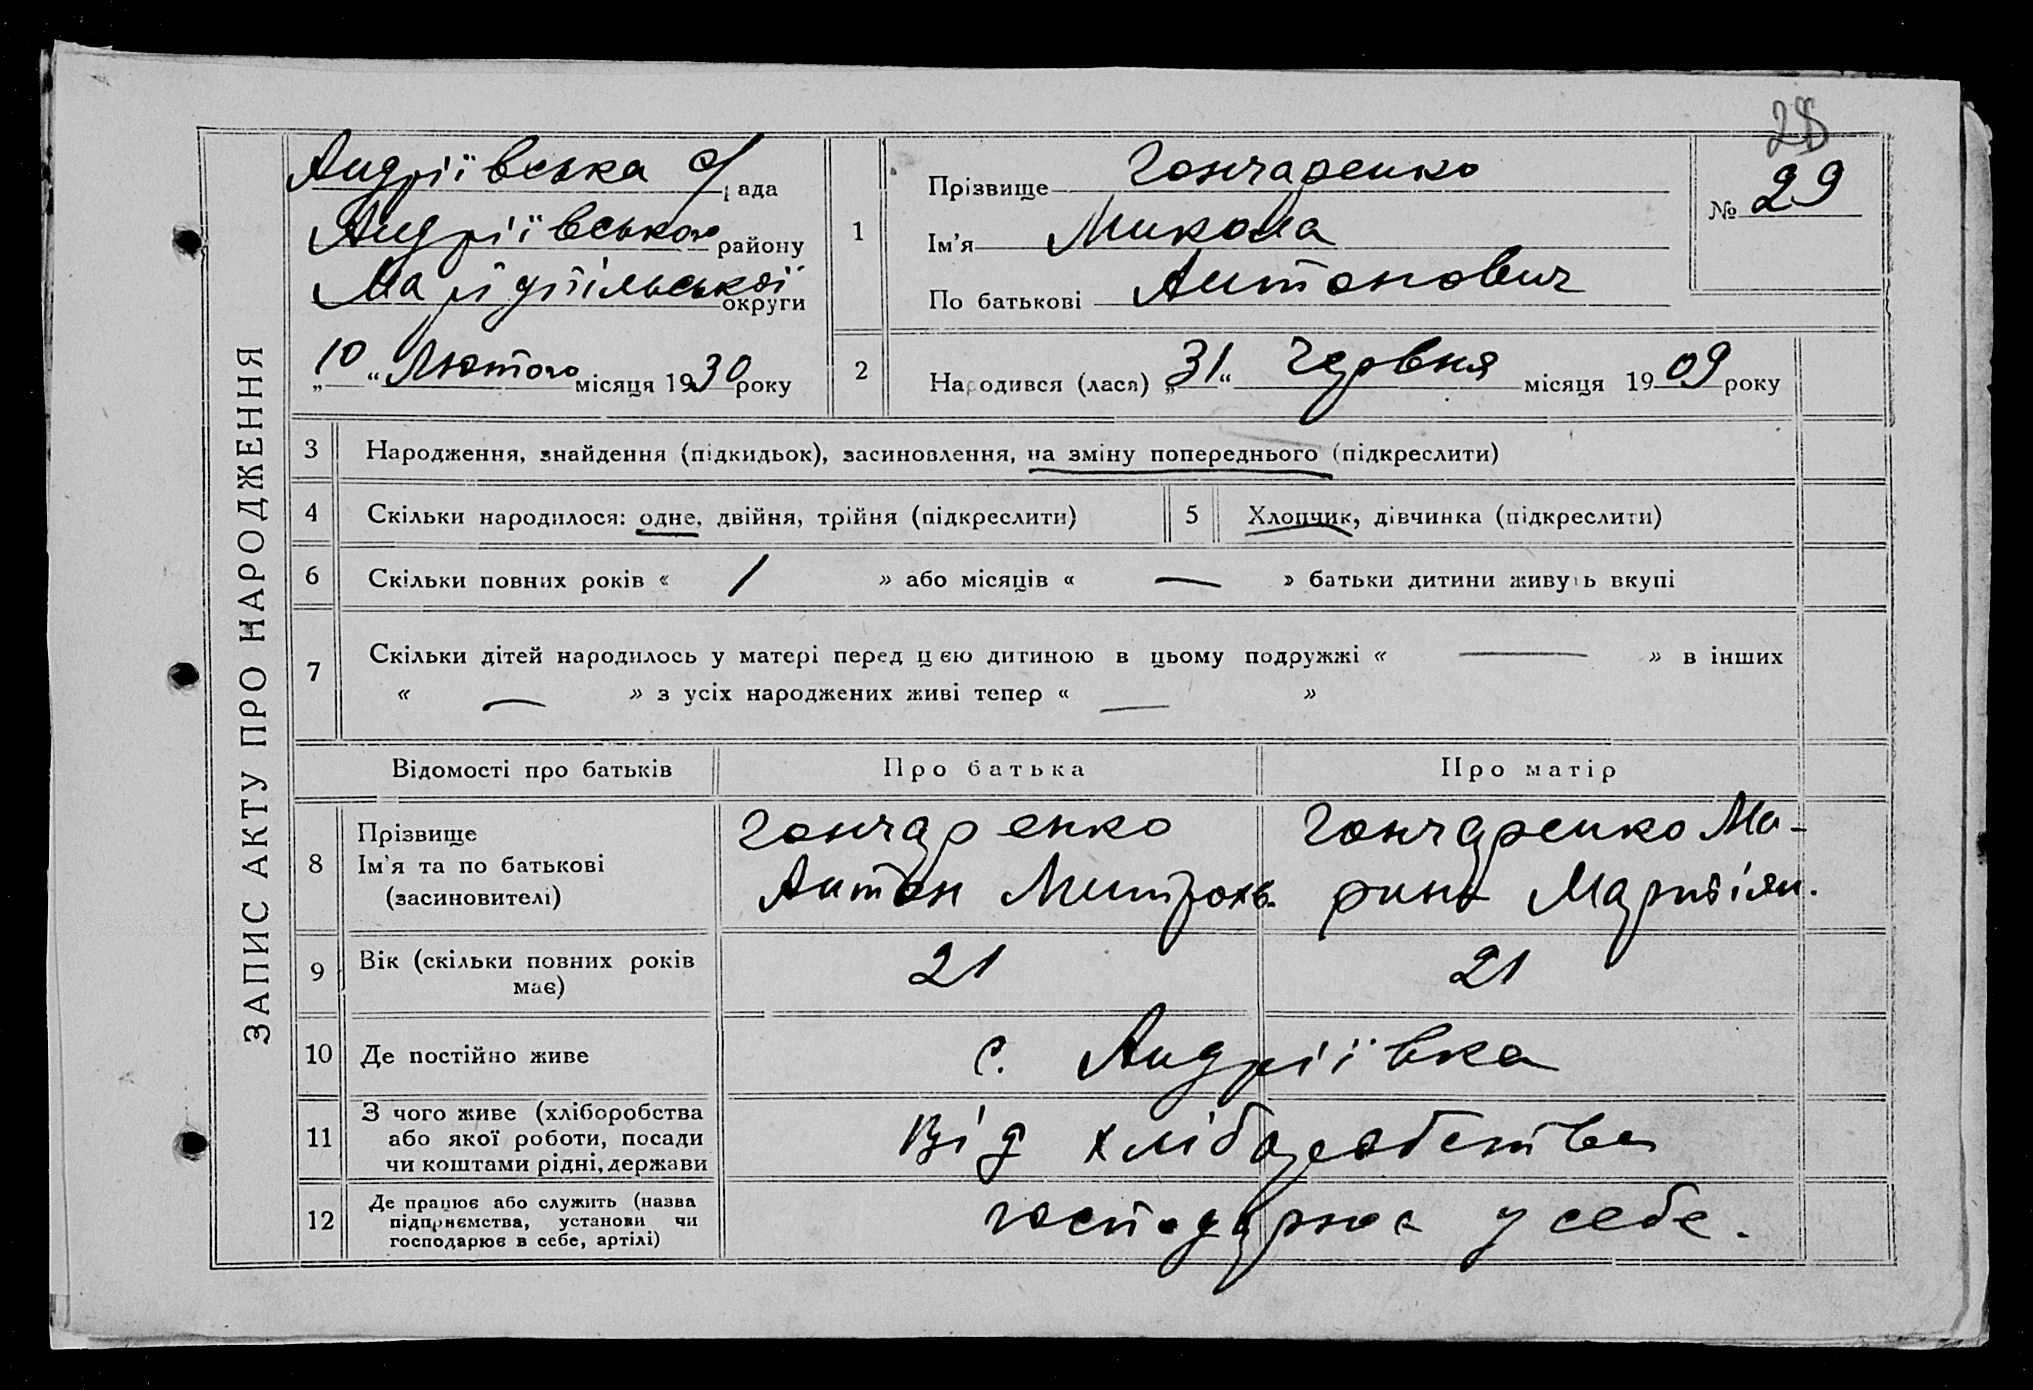 28
ЗАПИС АКТУ ПРО НАРОДЖЕННЯ
Андріївська с/рада
Андріївського району
Маріупільської округи
„10“ Лютого місяця 1930 року
1
Прізвище Гончаренко
Ім'я Микола
По батькові Антонович
№ 29
2
Народився (лася) „31“ Червня місяця 1909 року
3 Народження, знайдення (підкидьок), засиновлення, на зміну попереднього (підкреслити)
4 Скільки народилося: одне, двійня, трійня (підкреслити)
5 Хлопчик, дівчинка (підкреслити)
6 Скільки повних років « / » або місяців « — » батьки дитини живуть вкупі
7 Скільки дітей народилось у матері перед цією дитиною в цьому подружжі « — » в інших
« — » з усіх народжених живі тепер « — »
Відомості про батьків Про батька Про матір
8 Прізвище
Ім'я та по батькові
(засиновителі)
Гончаренко
Антон Митроф.
Гончаренко Ма-
рина
9 Вік (скільки повних років
має)
21 21
10 Де постійно живе с. Андріївка
11 З чого живе (хліборобства
або якої роботи, посади
чи коштами рідні, держави
Від хліборобства
12 Де працює або служить (назва
підприємства, установи чи
господарює в себе, артілі)
господарює у себе.